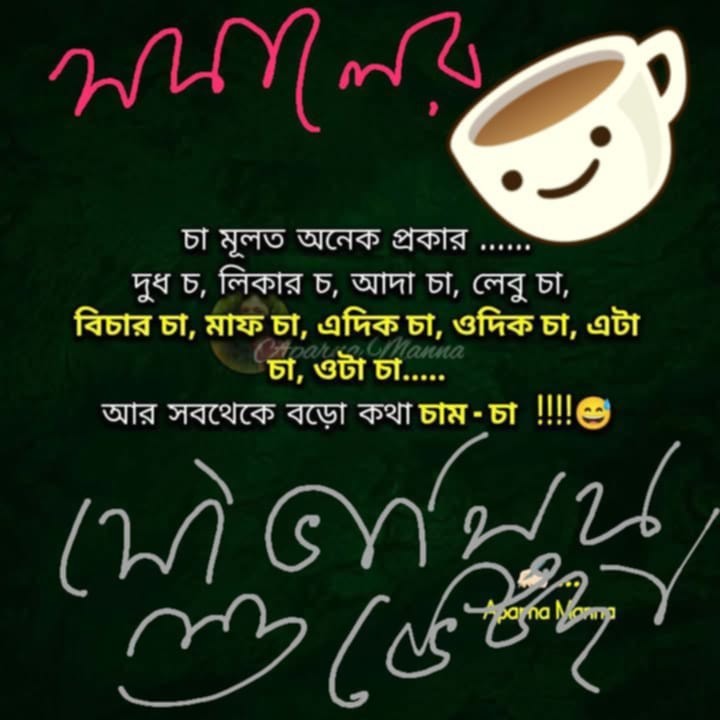 সকালের
চা মূলত অনেক প্রকার ......
দুধ চ, লিকার চ, আদা চা, লেবু চা,
বিচার চা, মাফ চা, এদিক চা, ওদিক চা, এটা
Aparna Manna
চা, ওটা চা.....
আর সবথেকে বড়ো কথা চাম - চা !!!!😅
Aparna Manna